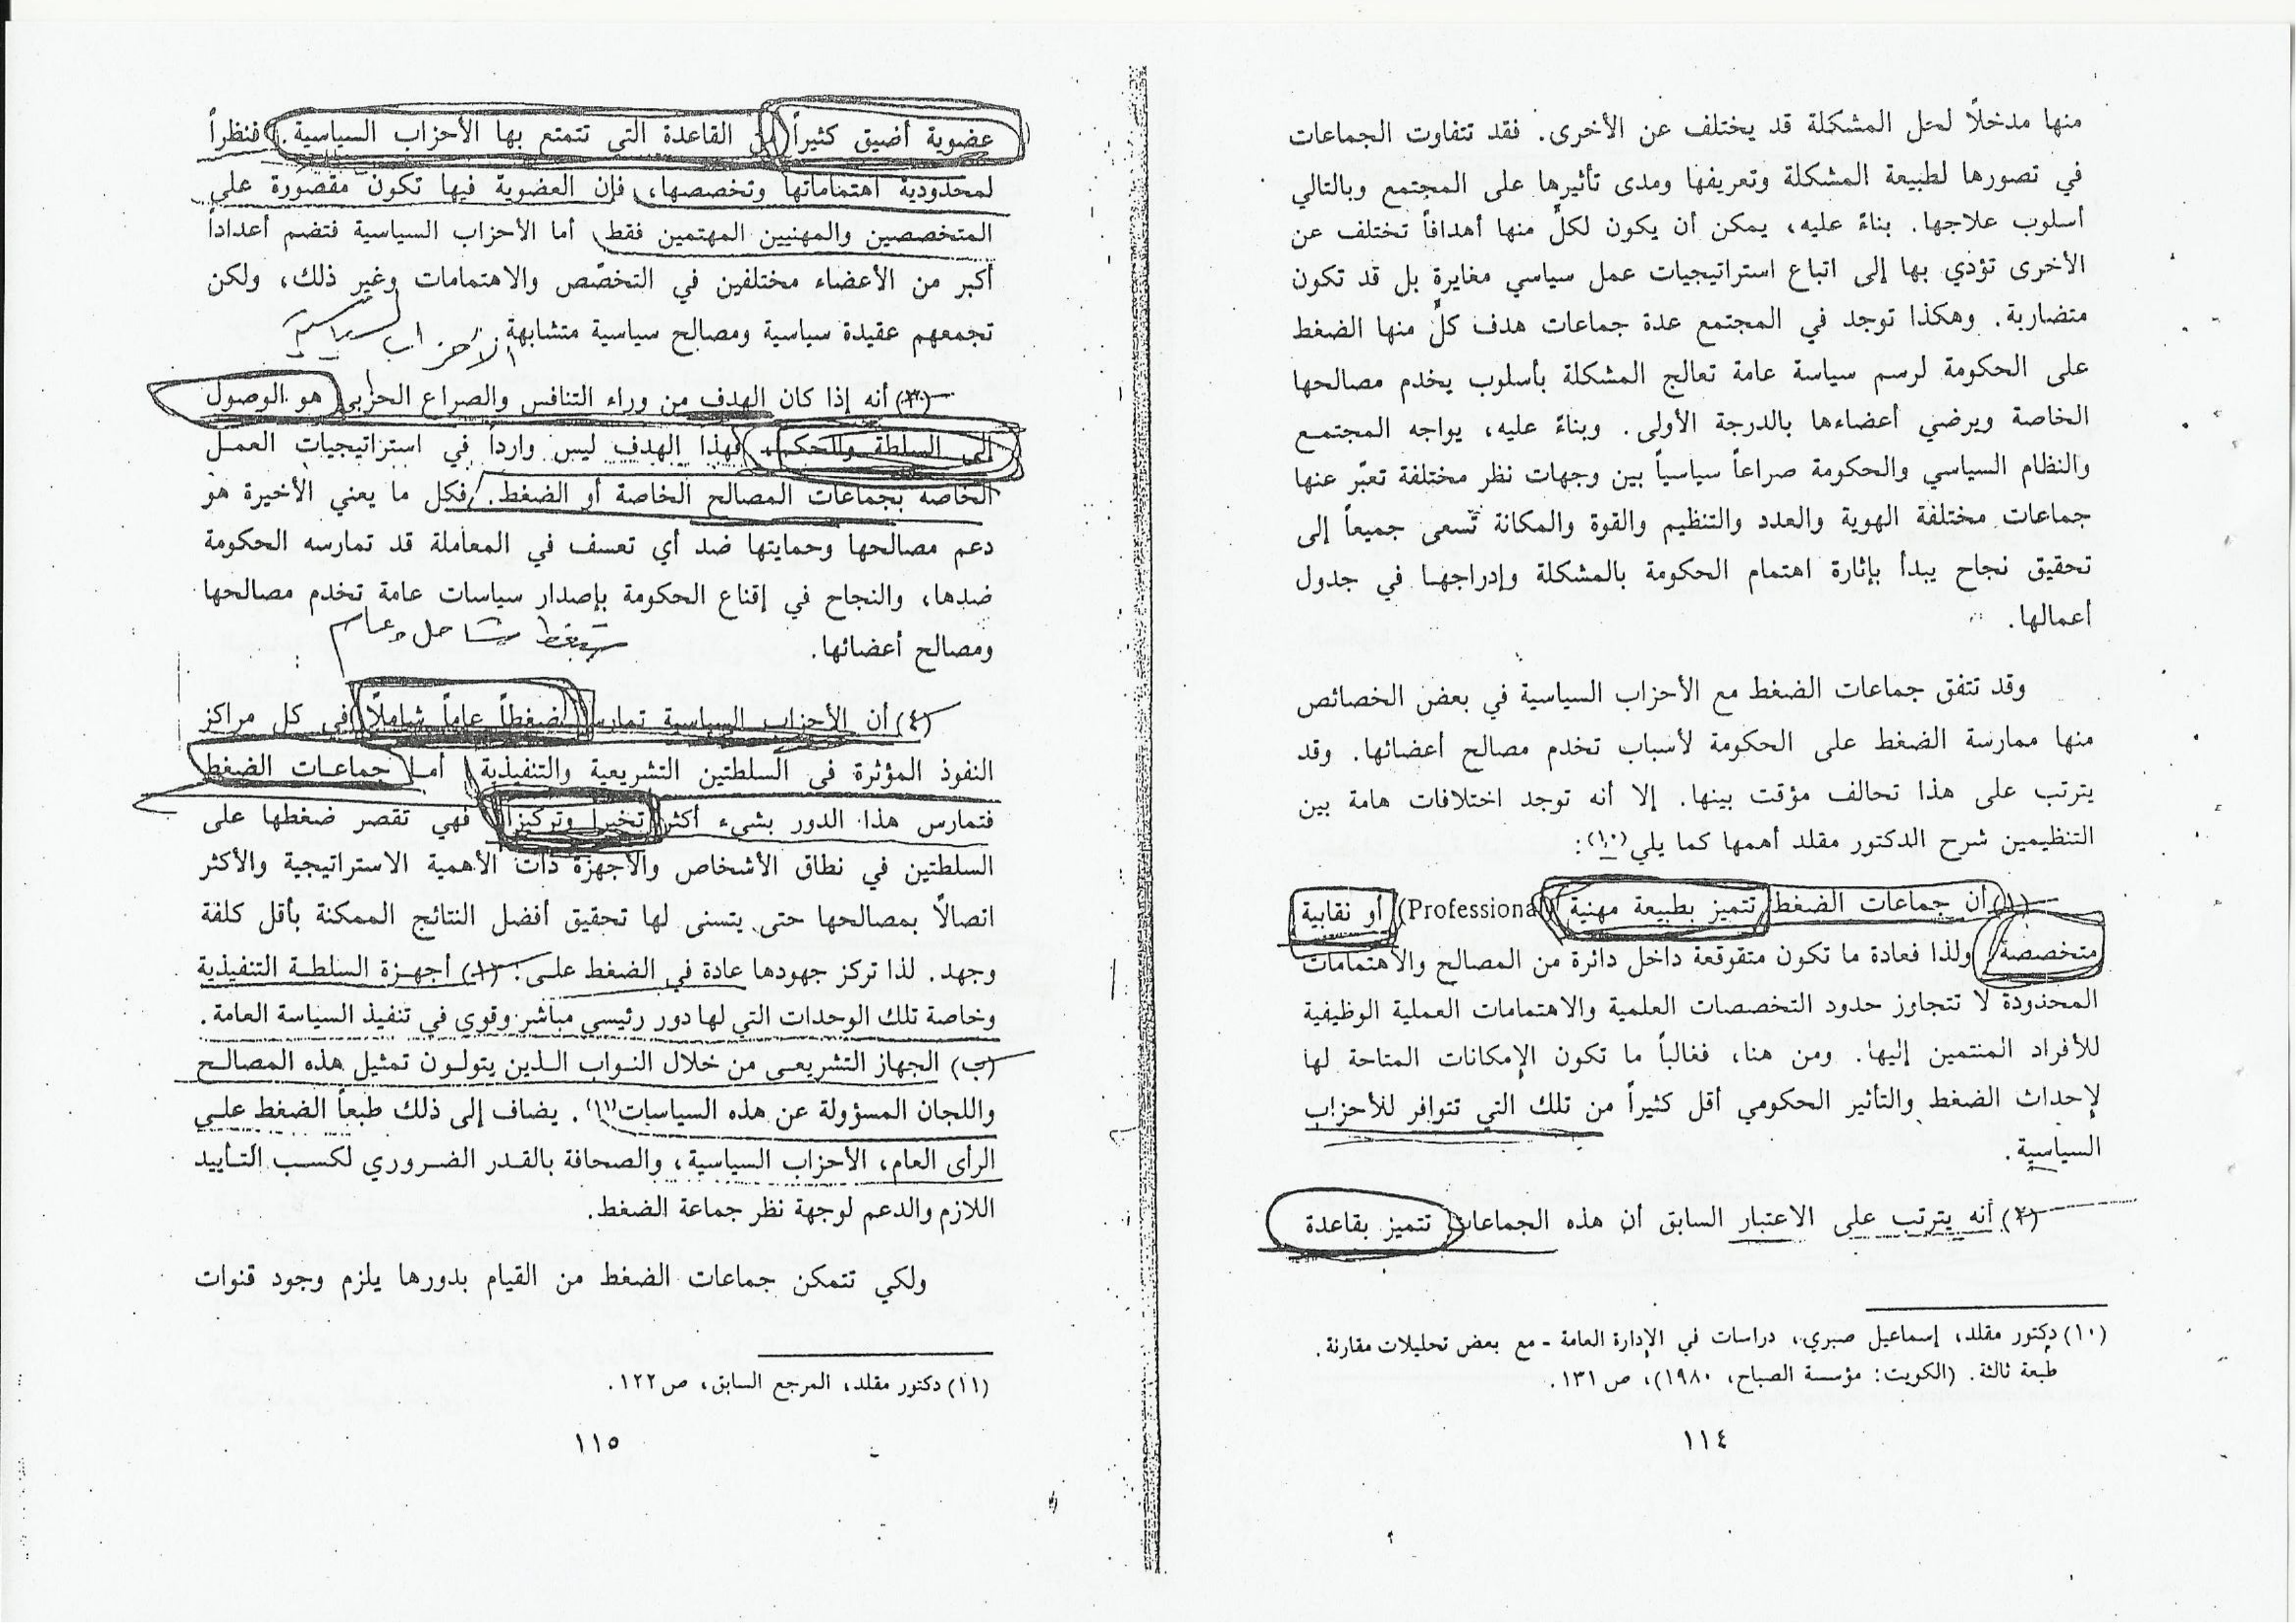 منها مدخلاً لحل المشكلة قد يختلف عن الأخرى. فقد تتفاوت الجماعات
في تصورها لطبيعة المشكلة وتعريفها ومدى تأثيرها على المجتمع وبالتالي
أسلوب علاجها. بناءً عليه، يمكن أن يكون لكلٍّ منها أهدافاً تختلف عن
الأخرى تؤدي بها إلى اتباع استراتيجيات عمل سياسي مغايرةٍ بل قد تكون
متضاربة. وهكذا توجد في المجتمع عدة جماعات هدف كلٍّ منها الضغط
على الحكومة لرسم سياسة عامة تعالج المشكلة بأسلوب يخدم مصالحها
الخاصة ويرضي أعضاءها بالدرجة الأولى. وبناءً عليه، يواجه المجتمع
والنظام السياسي والحكومة صراعاً سياسياً بين وجهات نظر مختلفة تعبّر عنها
جماعات مختلفة الهوية والعدد والتنظيم والقوة والمكانة تسعى جميعاً إلى
تحقيق نجاح يبدأ بإثارة اهتمام الحكومة بالمشكلة وإدراجها في جدول
أعمالها.
وقد تتفق جماعات الضغط مع الأحزاب السياسية في بعض الخصائص
منها ممارسة الضغط على الحكومة لأسباب تخدم مصالح أعضائها. وقد
يترتب على هذا تحالف مؤقت بينها. إلا أنه توجد اختلافات هامة بين
التنظيمين شرح الدكتور مقلد أهمها كما يلي(١٠):
(١) أن جماعات الضغط تتميز بطبيعة مهنية (Professional) أو نقابية
متخصصة، ولذا فعادة ما تكون متقوقعة داخل دائرة من المصالح والاهتمامات
المحدودة لا تتجاوز حدود التخصصات العلمية والاهتمامات العملية الوظيفية
للأفراد المنتمين إليها. ومن هنا، فغالباً ما تكون الإمكانات المتاحة لها
لإحداث الضغط والتأثير الحكومي أقل كثيراً من تلك التي تتوافر للأحزاب
السياسية.
(٢) أنه يترتب على الاعتبار السابق أن هذه الجماعات تتميز بقاعدة
(١٠) دكتور مقلد، إسماعيل صبري، دراسات في الإدارة العامة - مع بعض تحليلات مقارنة.
طبعة ثالثة. (الكويت: مؤسسة الصباح، ١٩٨٠)، ص ١٣١.
١١٤
عضوية أضيق كثيراً من القاعدة التي تتمتع بها الأحزاب السياسية. فنظراً
لمحدودية اهتماماتها وتخصصها، فإن العضوية فيها تكون مقصورة على
المتخصصين والمهنيين المهتمين فقط، أما الأحزاب السياسية فتضم أعداداً
أكبر من الأعضاء مختلفين في التخصّص والاهتمامات وغير ذلك، ولكن
تجمعهم عقيدة سياسية ومصالح سياسية متشابهة.
الاحزاب السياسية
(٣) أنه إذا كان الهدف من وراء التنافس والصراع الحزبي هو الوصول
إلى السلطة والحكم، فهذا الهدف ليس وارداً في استراتيجيات العمل
الخاصة بجماعات المصالح الخاصة أو الضغط. فكل ما يعني الأخيرة هو
دعم مصالحها وحمايتها ضد أي تعسف في المعاملة قد تمارسه الحكومة
ضدها، والنجاح في إقناع الحكومة بإصدار سياسات عامة تخدم مصالحها
ومصالح أعضائها.
شامل وعام
(٤) أن الأحزاب السياسية تمارس ضغطاً عاماً شاملاً في كل مراكز
النفوذ المؤثرة في السلطتين التشريعية والتنفيذية، أما جماعات الضغط
فتمارس هذا الدور بشيء أكثر تخيراً وتركيزاً، فهي تقصر ضغطها على
السلطتين في نطاق الأشخاص والأجهزة ذات الأهمية الاستراتيجية والأكثر
اتصالاً بمصالحها حتى يتسنى لها تحقيق أفضل النتائج الممكنة بأقل كلفة
وجهد. لذا تركز جهودها عادة في الضغط على: (١) أجهزة السلطة التنفيذية
وخاصة تلك الوحدات التي لها دور رئيسي مباشر وقوي في تنفيذ السياسة العامة.
(ب) الجهاز التشريعي من خلال النواب الذين يتولون تمثيل هذه المصالح
واللجان المسؤولة عن هذه السياسات(١١). يضاف إلى ذلك طبعاً الضغط على
الرأي العام، الأحزاب السياسية، والصحافة بالقدر الضروري لكسب التأييد
اللازم والدعم لوجهة نظر جماعة الضغط.
ولكي تتمكن جماعات الضغط من القيام بدورها يلزم وجود قنوات
(١١) دكتور مقلد، المرجع السابق، ص ١٢٢.
١١٥